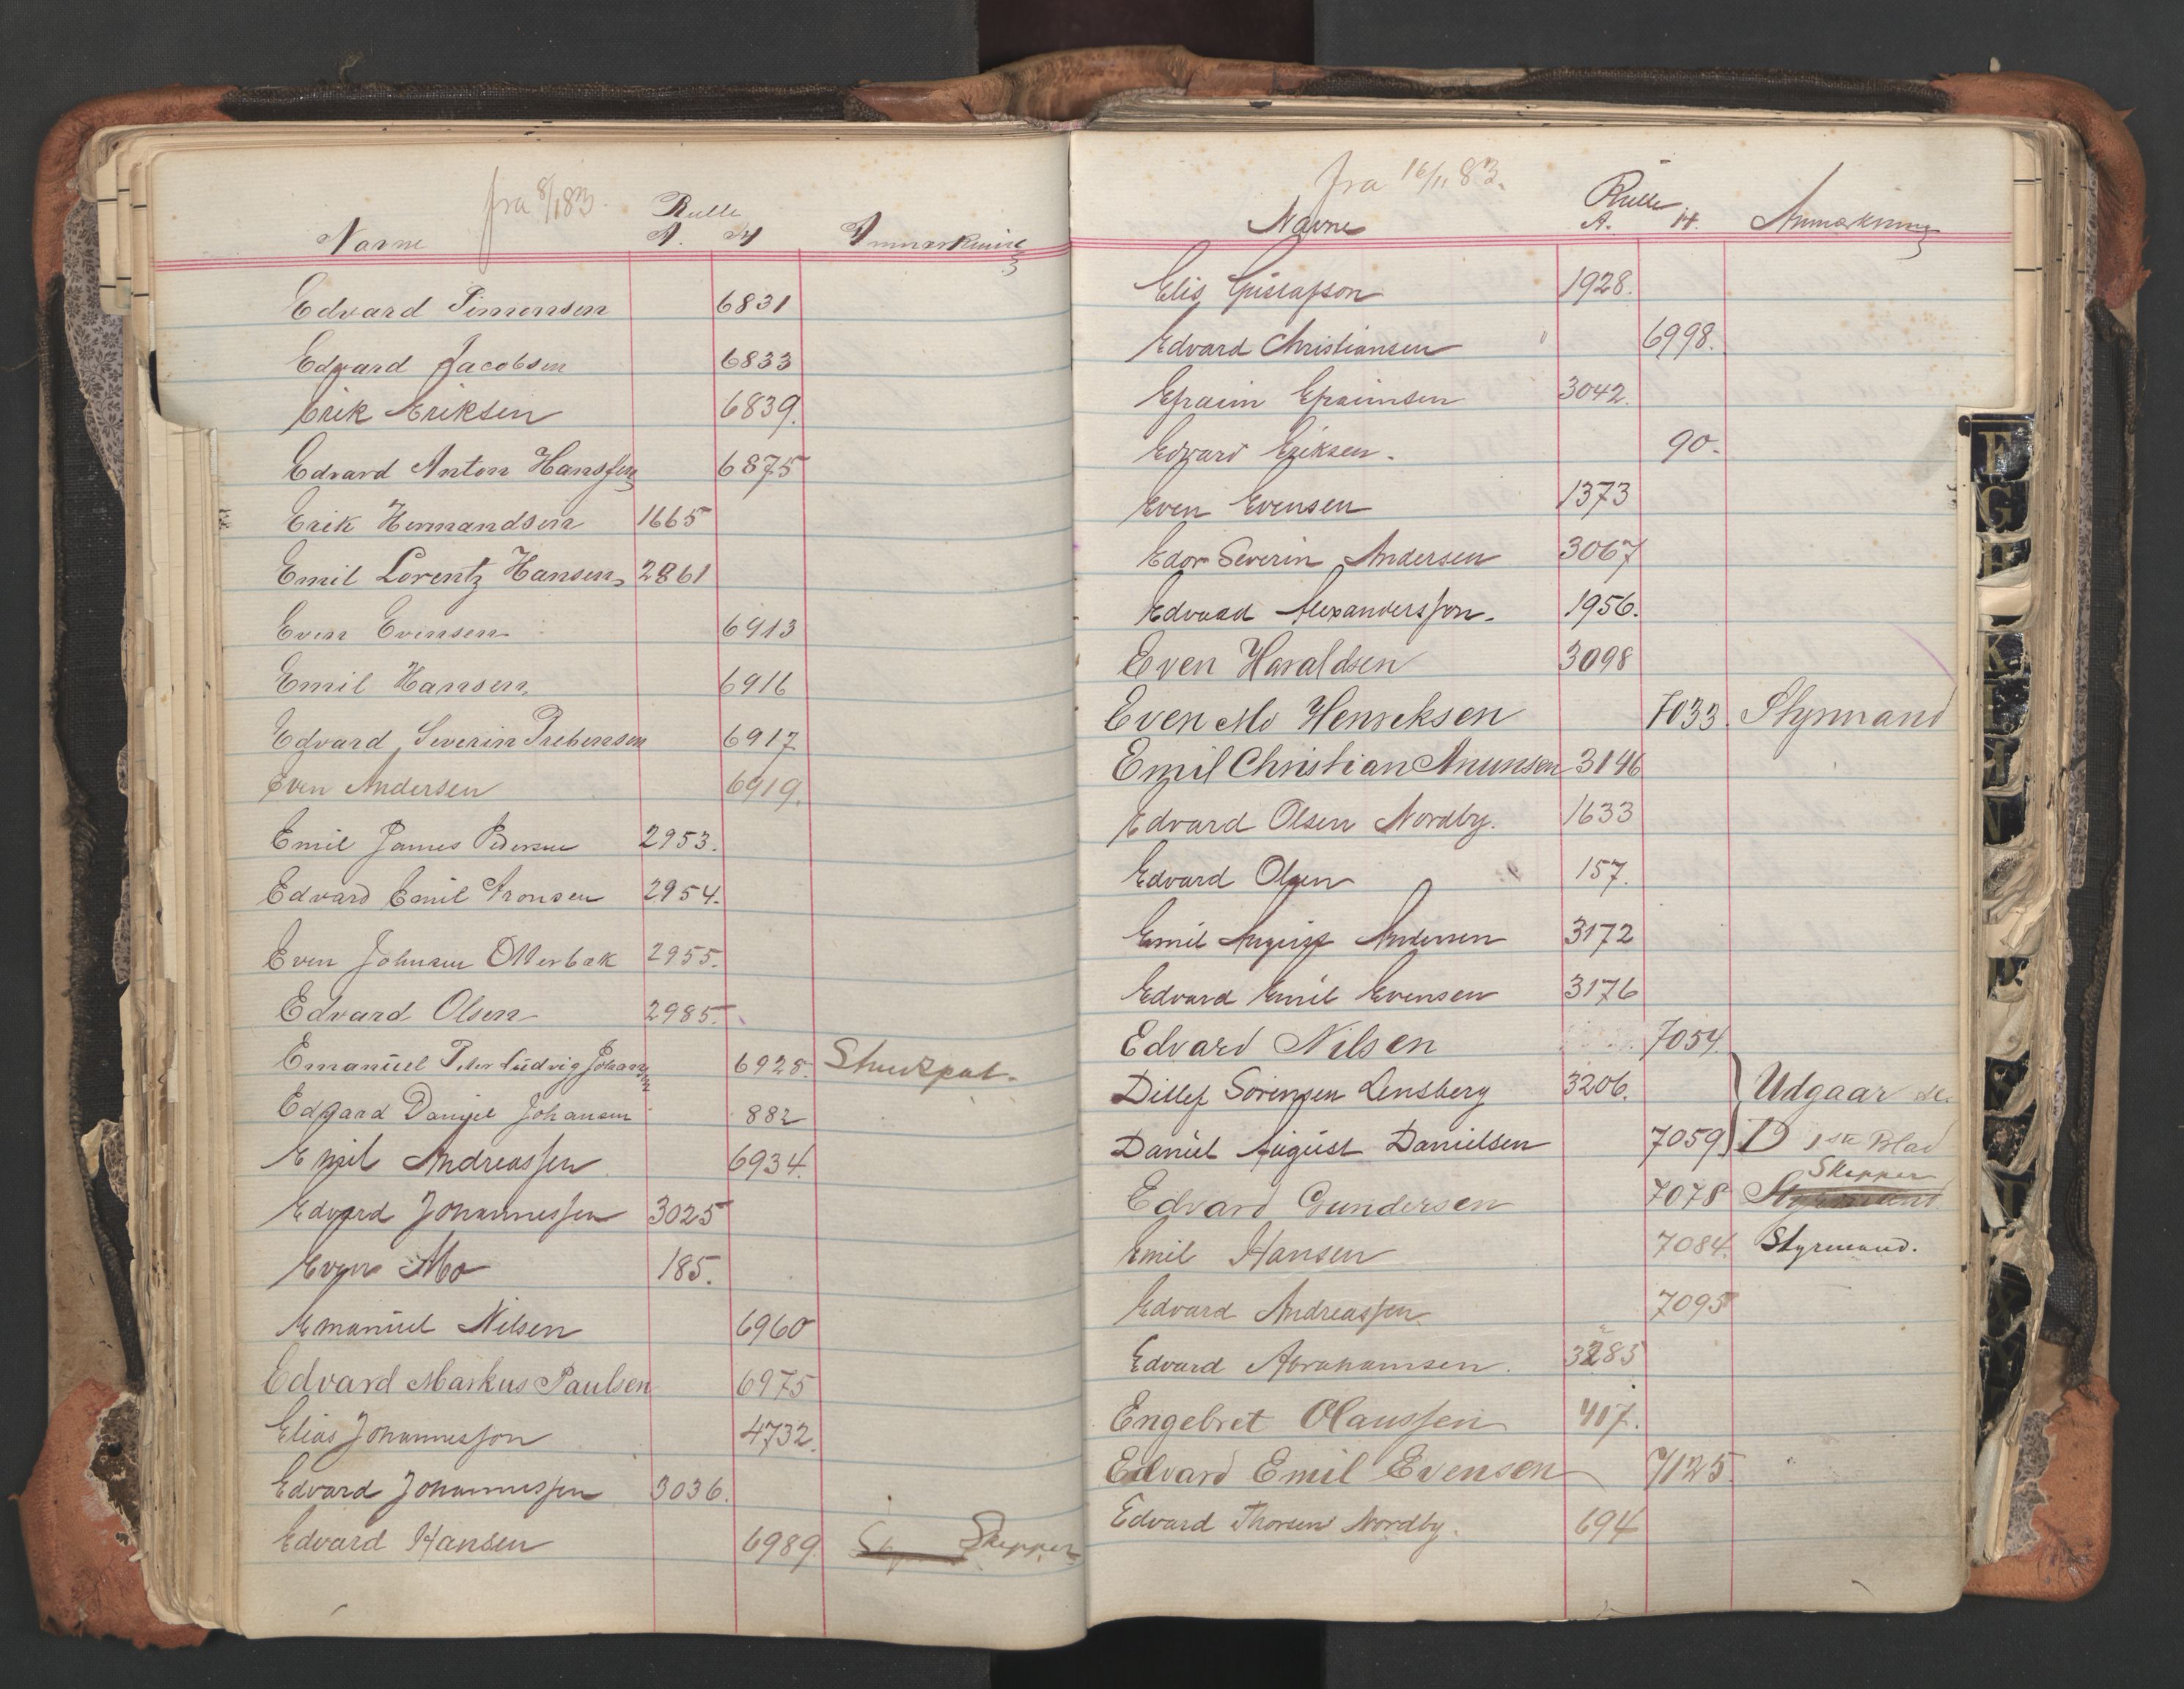 fra 8/1 83.
Rulle
Navne A. H Anmærkning
Edvard Simensen 6831
Edvard Jacobsen 6833
Erik Eriksen 6839.
Edvard Anton Hanssen 6875
Erik Hermandsen 1665
Emil Lorentz Hansen 2861
Even Evensen 6913
Emil Hansen 6916
Edvard Severin Prebensen 6917
Even Andersen 6919.
Emil James Pedersen 2953.
Edvard Emil Aronsen 2954.
Even Johnsen Otterbæk 2955.
Edvard Olsen 2985.
Emanuel Peter Ludvig Johansen 6925.
Edvard Daniel Johansen 882
Emil Andreassen 6934.
Edvard Johannessen 3025
Even Mo 185.
Emanuel Nilsen 6960
Edvard Markus Paulsen 6975
Elias Johannesson 4732.
Edvard Johannessen 3036.
Edvard Hansen 6989. Skipper
fra 16/11 83.
Rulle
Navne A. H. Anmærkning
Elis Gustafson 1928.
Edvard Christiansen 6998.
Epraim Epraimsen 3042.
Edvard Eriksen. 90.
Even Evensen 1373
Edor Severin Andersen 3067
Edvard Alexandersson. 1956.
Even Haraldsen 3098
Even Mo Henriksen 7033 Styrmand
Emil Christian Anunsen 3146
Edvard Olsen Nordby. 1633
Edvard Olsen 157.
Emil August Andersen 3172
Edvard Emil Evensen 3176
Edvard Nilsen 7054.
Ditlef Sörensen Lensberg 3206. Udgaar se.
Daniel August Danielsen 7059 D 1ste Blad
Skipper
Edvard Gundersen 7078 Styrmand
Emil Hansen 7084. Styrmand.
Edvard Andreassen 7095
Edvard Abrahamsen. 3283
Engebret Olaussen 417.
Edvard Emil Evensen 7125.
Edvard Thorsen Nordby. 694
F
G
K